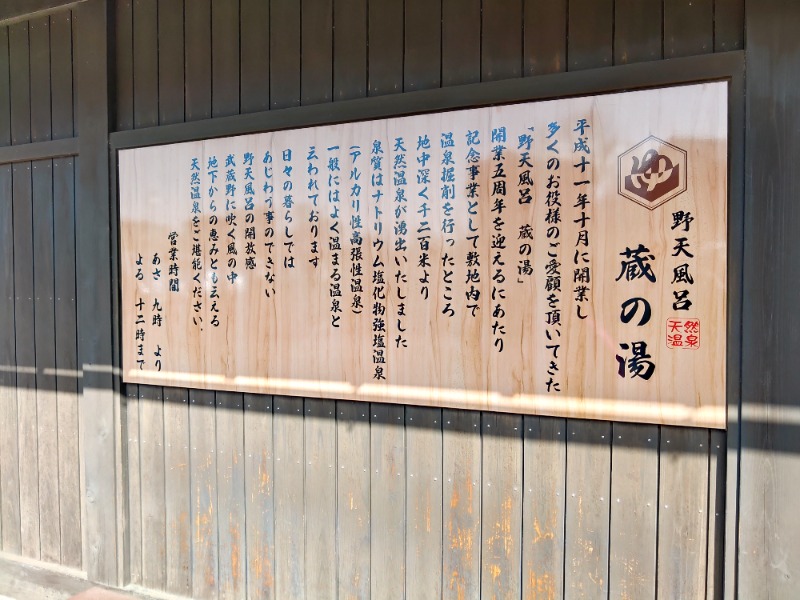 ゆ
野天風呂
蔵の湯
天然
温泉
平成十一年十月に開業し
多くのお役様のご愛顧を頂いてきた
「野天風呂 蔵の湯」
開業五周年を迎えるにあたり
記念事業として敷地内で
温泉掘削を行ったところ
地中深く千二百米より
天然温泉が湧出いたしました
泉質はナトリウム塩化物強塩温泉
(アルカリ性高張性温泉)
一般にはよく温まる温泉と
云われております
日々の暮らしでは
あじわう事のできない
野天風呂の開放感
武蔵野に吹く風の中
地下からの恵みとも云える
天然温泉をご堪能ください。
営業時間
あさ 九時 より
よる 十二時まで